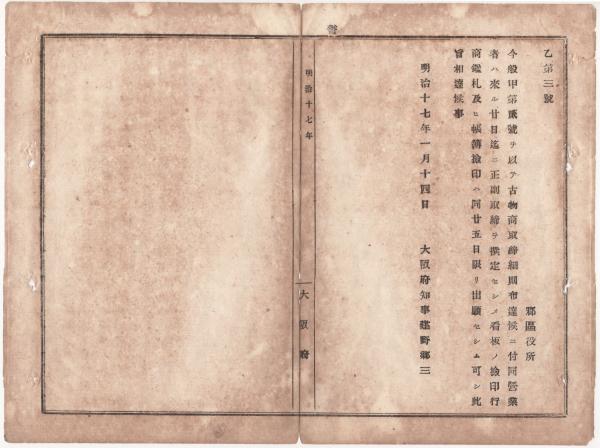 乙第三號
郡區役所
今般甲第貳號ヲ以テ古物商取締細則布達候ニ付同營業
者ハ來ル廿日迄ニ正副取締ヲ撰定セシメ看板ノ撿印行
商鑑札及ヒ帳簿撿印ハ同廿五日限リ出願セシム可シ此
旨相達候事
明治十七年一月十四日
大阪府知事建野郷三
明治十七年
大阪府